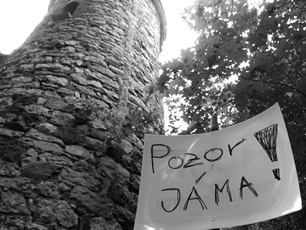 Pozor!
JÁMA!